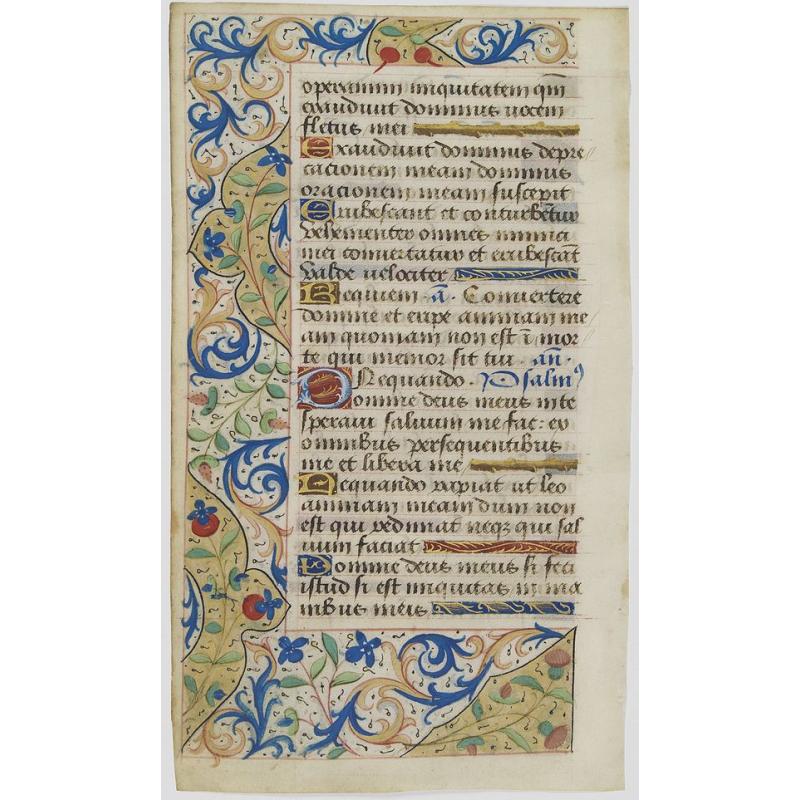 operamini iniquitatem qm̄
exaudivit dominus vocem
fletus mei
Exaudivit dominus depre
cationem meam dominus
orationem meam suscepit
Erubescant et conturbētur
vehementer omnes inimici
mei convertatur et erubescāt
valde velociter
Requiem · a͞ · Convertere
domine et eripe animam me
am quoniam non est ī mor
te qui memor sit tui · añ ·
Nequando · Psalm⁹
Domine deus meus in te
speravi salvum me fac: ex
omnibus persequentibus
me et libera me
Nequando rapiat ut leo
animam meam dum non
est qui redimat neqꝫ qui sal
vum faciat
Domine deus meus si feci
istud si est iniquitas in ma
nibus meis